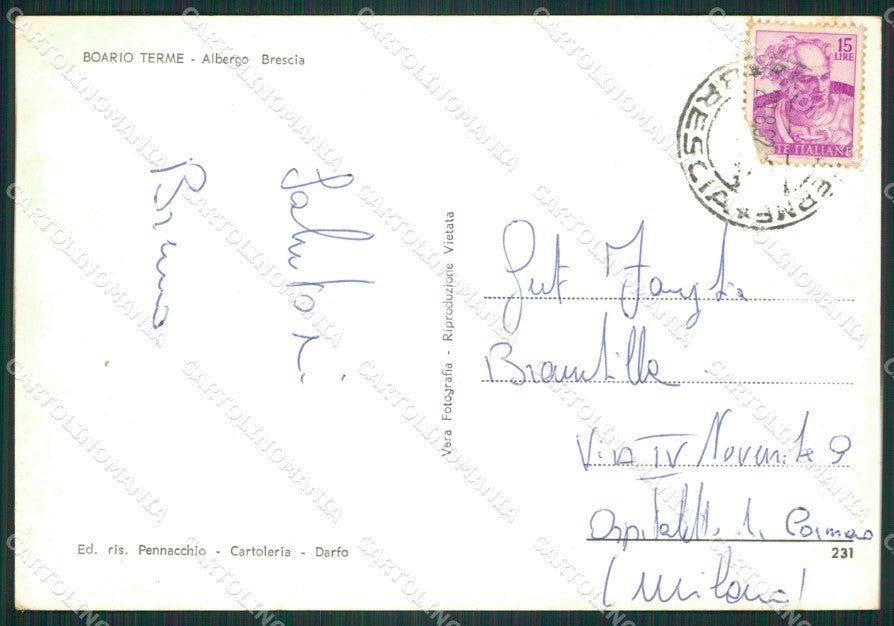 BOARIO TERME - Albergo Brescia
15
LIRE
TE ITALIANE
TERME * BRESCIA *
Salutoni
Bruno
Vera Fotografia - Riproduzione Vietata
Gent
Brambilla
Via IV Novembre 9
Ospitaletto di
(Milano)
Ed. ris. Pennacchio - Cartoleria - Darfo
231
CARTOLINOMANIA